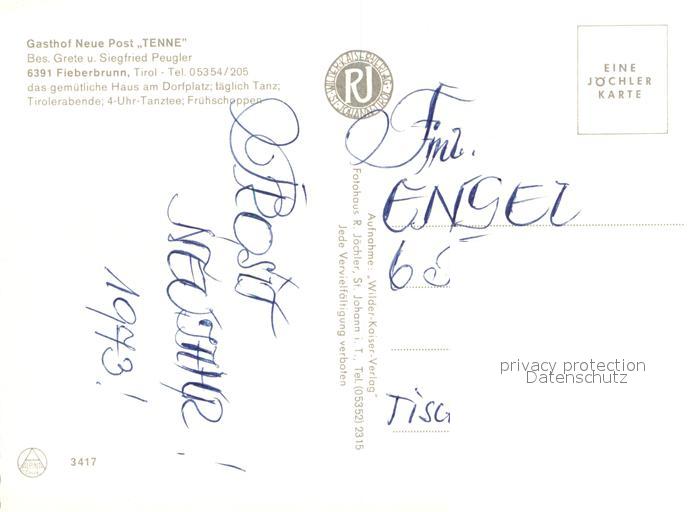 Gasthof Neue Post „TENNE"
Bes. Grete u. Siegfried Peugler
6391 Fieberbrunn, Tirol - Tel. 05354/205
das gemütliche Haus am Dorfplatz; täglich Tanz;
Tirolerabende; 4-Uhr-Tanztee; Frühschoppen
PROSIT
NEUJAHR
1973!
!
3417
ALPINA
WILDER-KAISER-VERLAG
ST. JOHANN TIROL
RJ
Aufnahme: „Wilder-Kaiser-Verlag"
Fotohaus R. Jöchler, St. Johann i. T., Tel. (05352) 2315
Jede Vervielfältigung verboten
EINE
JÖCHLER
KARTE
Fml.
ENGEL
6
TISC
privacy protection
Datenschutz